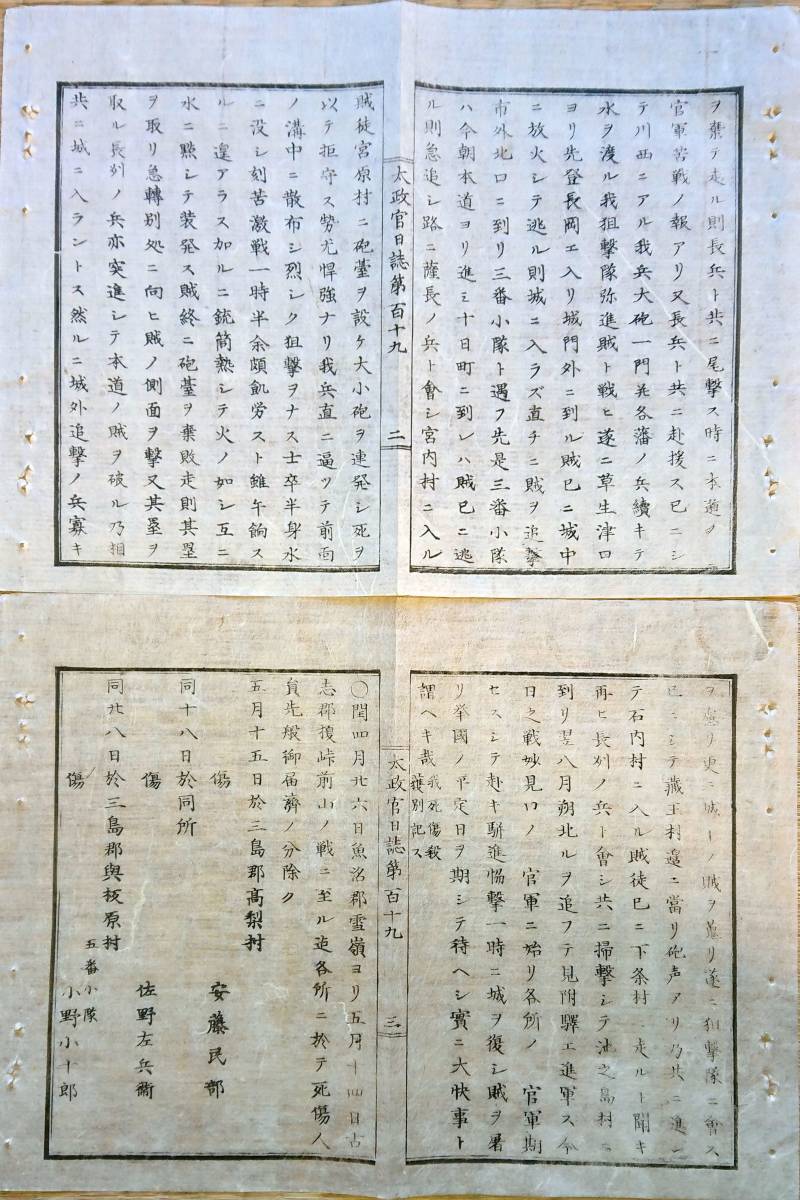 ヲ棄テ走ル則長兵ト共ニ尾撃ス時ニ本道ヲ
官軍苦戦ノ報アリ又長兵ト共ニ赴援ス已ニシ
テ川西ニアル我兵大砲一門并各藩ノ兵續キテ
水ヲ渡ル我狙撃隊弥進賊ト戦ヒ遂ニ草生津口
ヨリ先登長岡エ入リ城門外ニ到ル賊已ニ城中
ニ放火シテ逃ル則城ニ入ラズ直チニ賊ヲ追撃
市外北口ニ到リ三番小隊ト遇フ先是三番小隊
ハ今朝本道ヨリ進ミ十日町ニ到レハ賊已ニ逃
ル則急追シ路ニ薩長ノ兵ト會シ宮内村ニ入ル
太政官日誌第百十九 二
賊徒宮原村ニ砲臺ヲ設ケ大小砲ヲ連発シ死ヲ
以テ拒守ス勢尤悍強ナリ我兵直ニ逼ツテ前面
ノ溝中ニ散布シ烈シク狙撃ヲナス士卒半身水
ニ没シ刻苦激戦一時半余頗飢労スト雖午餉ス
ルニ遑アラス加ルニ銃筒熱シテ火ノ如シ互ニ
水ニ點シテ装発ス賊終ニ砲臺ヲ棄敗走則其塁
ヲ取リ急轉別処ニ向ヒ賊ノ側面ヲ撃又其塁ヲ
取ル長州ノ兵亦突進シテ本道ノ賊ヲ破ル乃相
共ニ城ニ入ラントス然ルニ城外追撃ノ兵寡キ
ヲ慮リ更ニ城下ノ賊ヲ遂ニ狙撃隊ニ會ス
已ニシテ藏王村邉ニ當リ砲声アリ乃共ニ進ン
テ石内村ニ入ル賊徒已ニ下条村ニ走ルト聞キ
再ヒ長州ノ兵ト會シ共ニ掃撃シテ池之島村ニ
到リ翌八月朔北ルヲ追フテ見附驛エ進軍ス今
日之戦妙見口ノ 官軍ニ始リ各所ノ 官軍期
セスシテ赴キ駢進協撃一時ニ城ヲ復シ賊ヲ屠
リ挙國ノ平定日ヲ期シテ待ヘシ實ニ大快事ト
謂ヘキ哉 我死傷殺獲別記ス
太政官日誌第百十九 三
〇閏四月廿六日魚沼郡雪嶺ヨリ五月十四日古
志郡榎峠前山ノ戦ニ至ル迠各所ニ於テ死傷人
員先般御届濟ノ分除ク
五月十五日於三島郡髙梨村
傷 安藤民部
同十八日於同所
傷 佐野左兵衛
同廿八日於三島郡與板原村
五番小隊
傷 小野小十郎